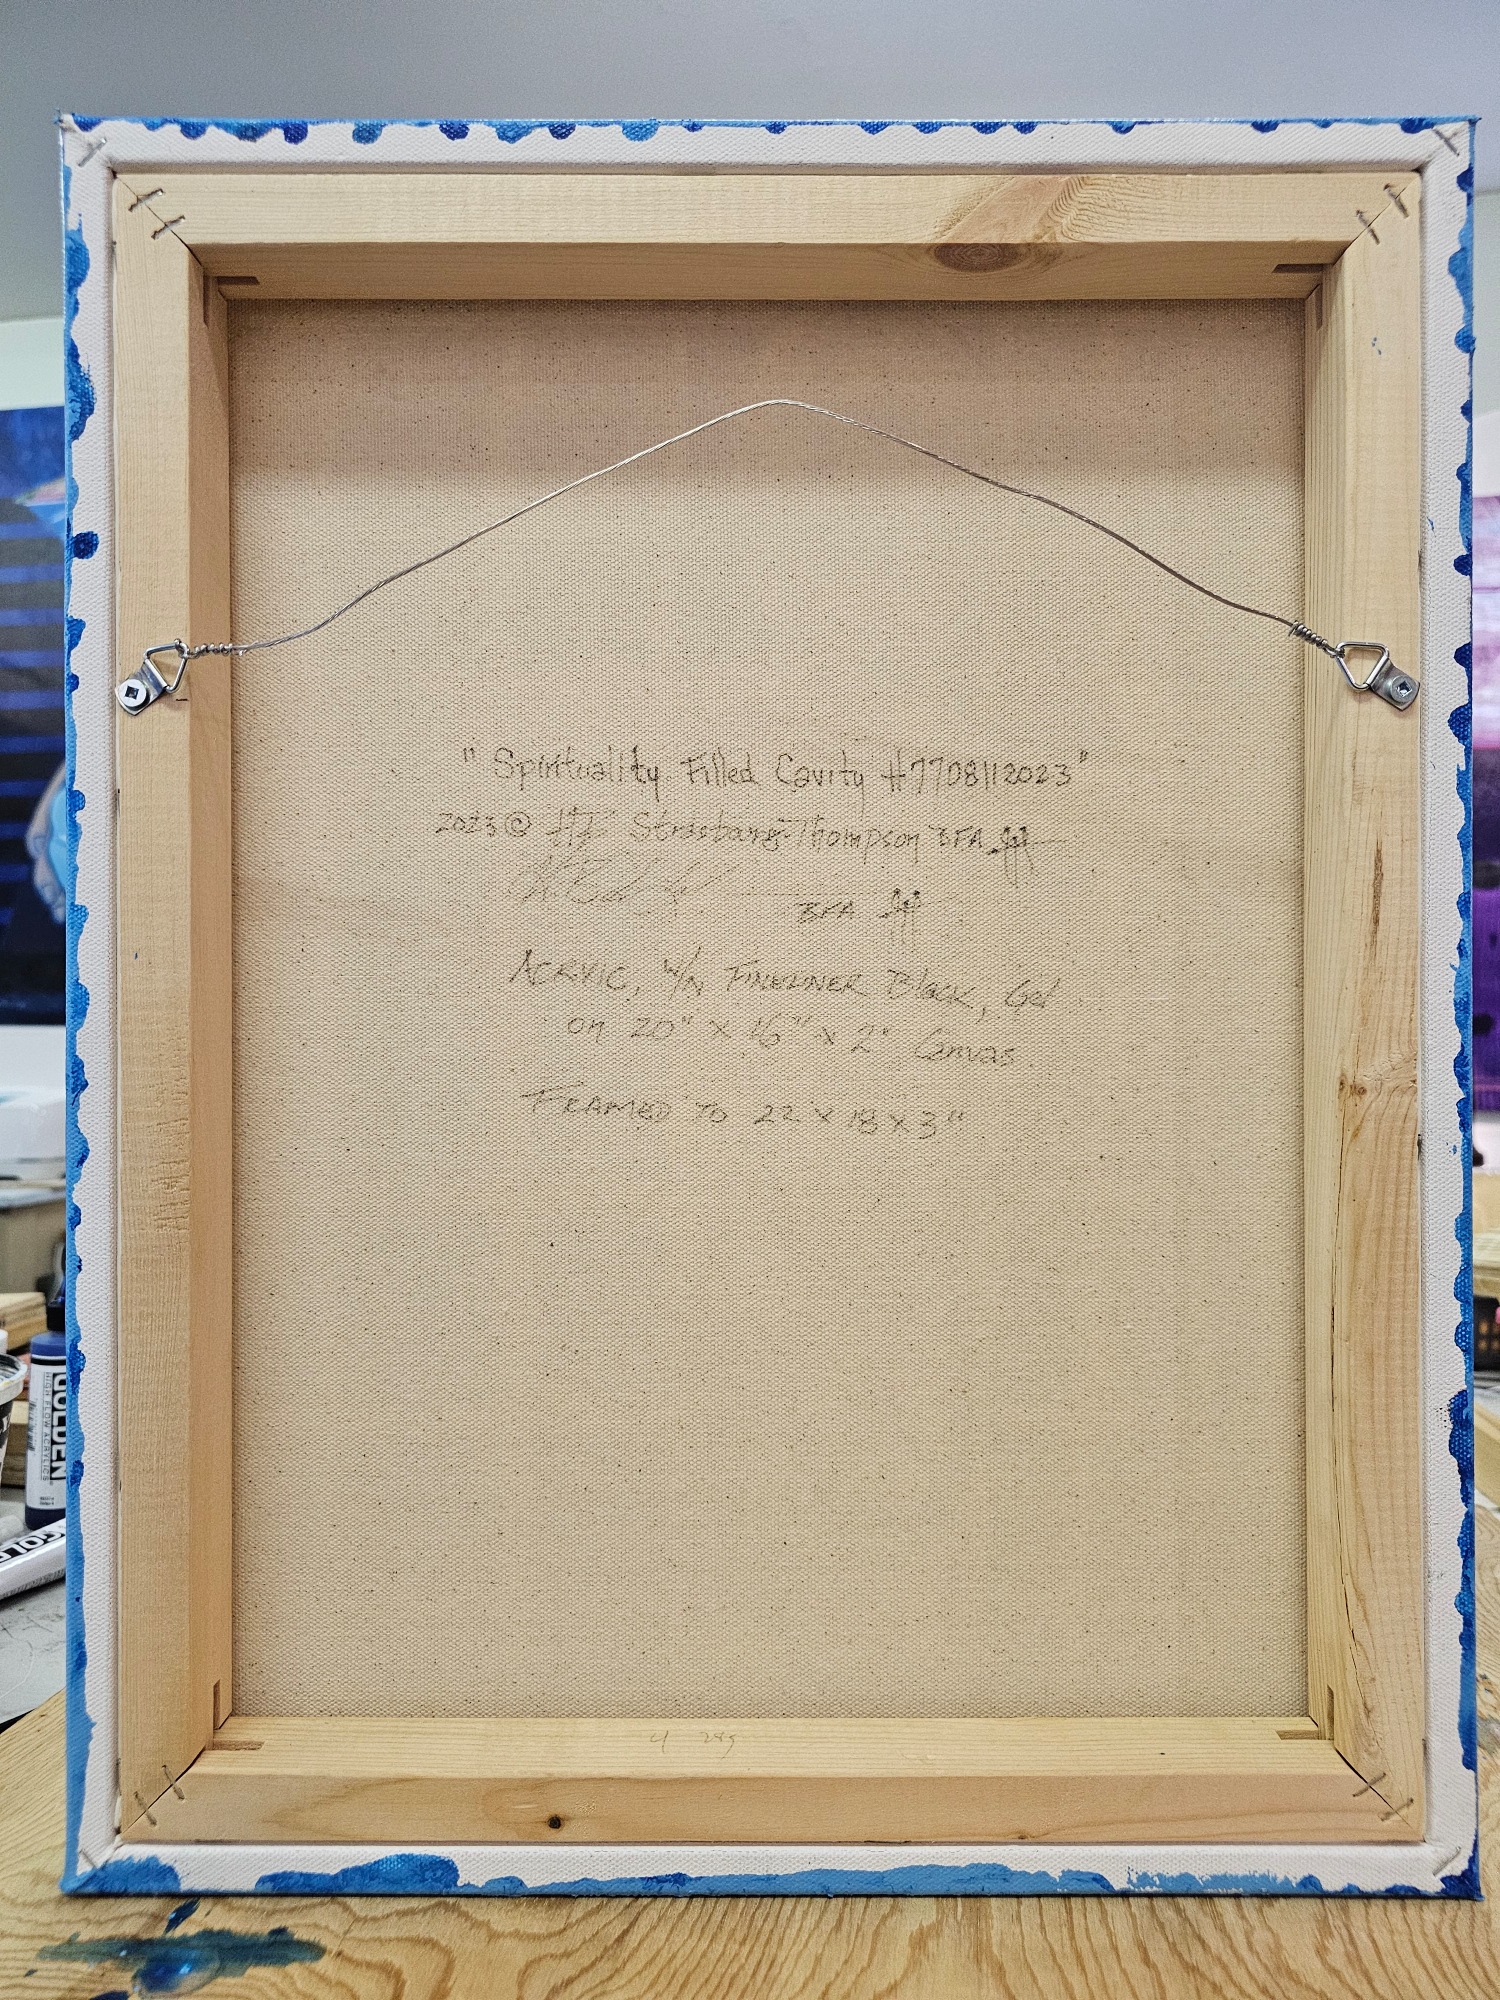 "Spirituality Filled Cavity #7708112023"
2023 © HT Strasbourg-Thompson BFA
BFA
ACRYLIC, W/N FINELINER Black, Gel
on 20" x 16" x 2" Canvas
FRAMED TO 22 x 18 x 3"
GOLDEN
HIGH FLOW ACRYLICS
GOL